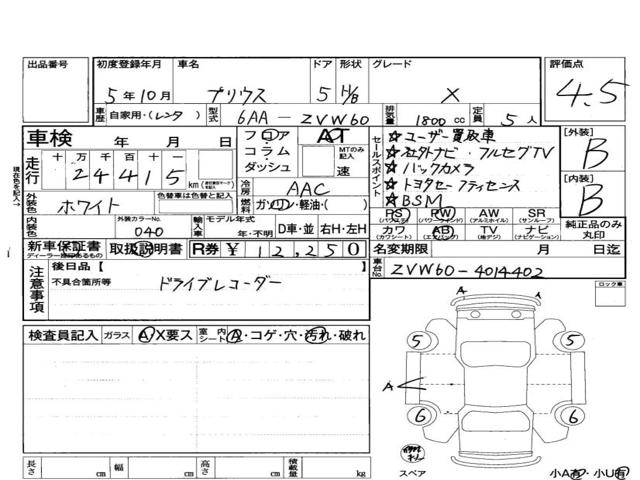 出品番号 初度登録年月 車名 ドア 形状 グレード 評価点
5年10月 プリウス 5 H/B X 4.5
車歴 自家用・(レンタ) 型式 6AA-ZVW60 排気量 1800cc 定員 5人
車検 年 月 日 フロア AT セールスポイント ☆ユーザー買取車 [外装]
走行 十 万 千 百 十 一 コラム MTのみ記入 ☆社外ナビ・フルセグTV B
24415 km ダッシュ 速 ☆バックカメラ
現在色を記入→ 外装色 ホワイト 冷房 AAC ☆トヨタセーフティセンス [内装]
燃料 ガソリン・軽油・( ) ☆BSM B
色替車は色替と記入
内装色 外装カラーNo. 040 輸入車 モデル年式 年・不明 D車・並 右H・左H PS(パワステ) PW(パワーウィンド) AW(アルミホイル) SR(サンルーフ) 純正品のみ丸印
カワ(カワシート) AB(エアバック) TV(地デジ) ナビ(ナビゲーション)
新車保証書 ディーラー捺印あるもの 取扱説明書 R券 ¥12,250 名変期限 月 日迄
注意事項 後日品【 】 車台No. ZVW60-4014402
不具合箇所等 ドライブレコーダー ロック車
検査員記入 ガラス A/X要ス 室内シート A・コゲ・穴・汚れ・破れ
A A
5 5
A
6 6
スペア
長さ cm 幅 cm 高さ cm 積載量 kg 小A有・小U有